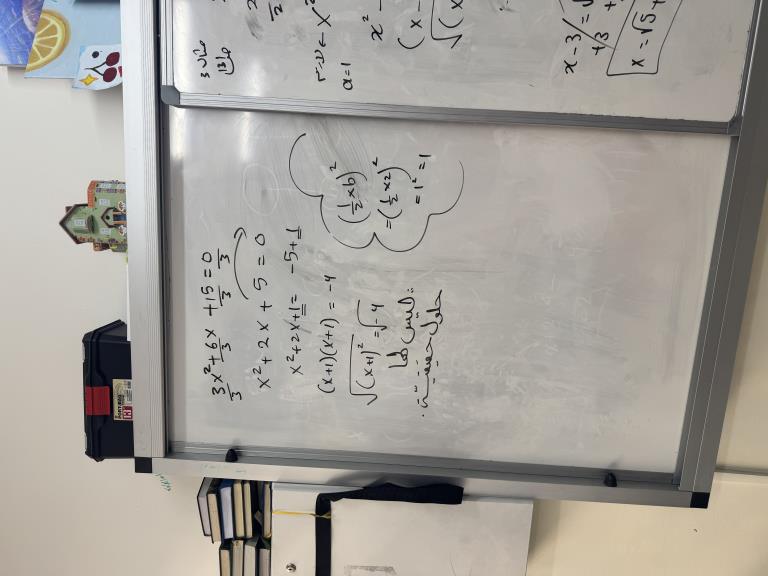 3x²/3 + 6x/3 + 15/3 = 0/3
x² + 2x + 5 = 0
x² + 2x + 1 = -5 + 1
(x+1)(x+1) = -4
√(x+1)² = √-4
ليس لها
حلول حقيقية.
(1/2 × b)²
= (1/2 × 2)²
= 1² = 1
مثال 3
a=1
x²
x²
(x -
√(x
x - 3 = √
+3 +
x = √5 +